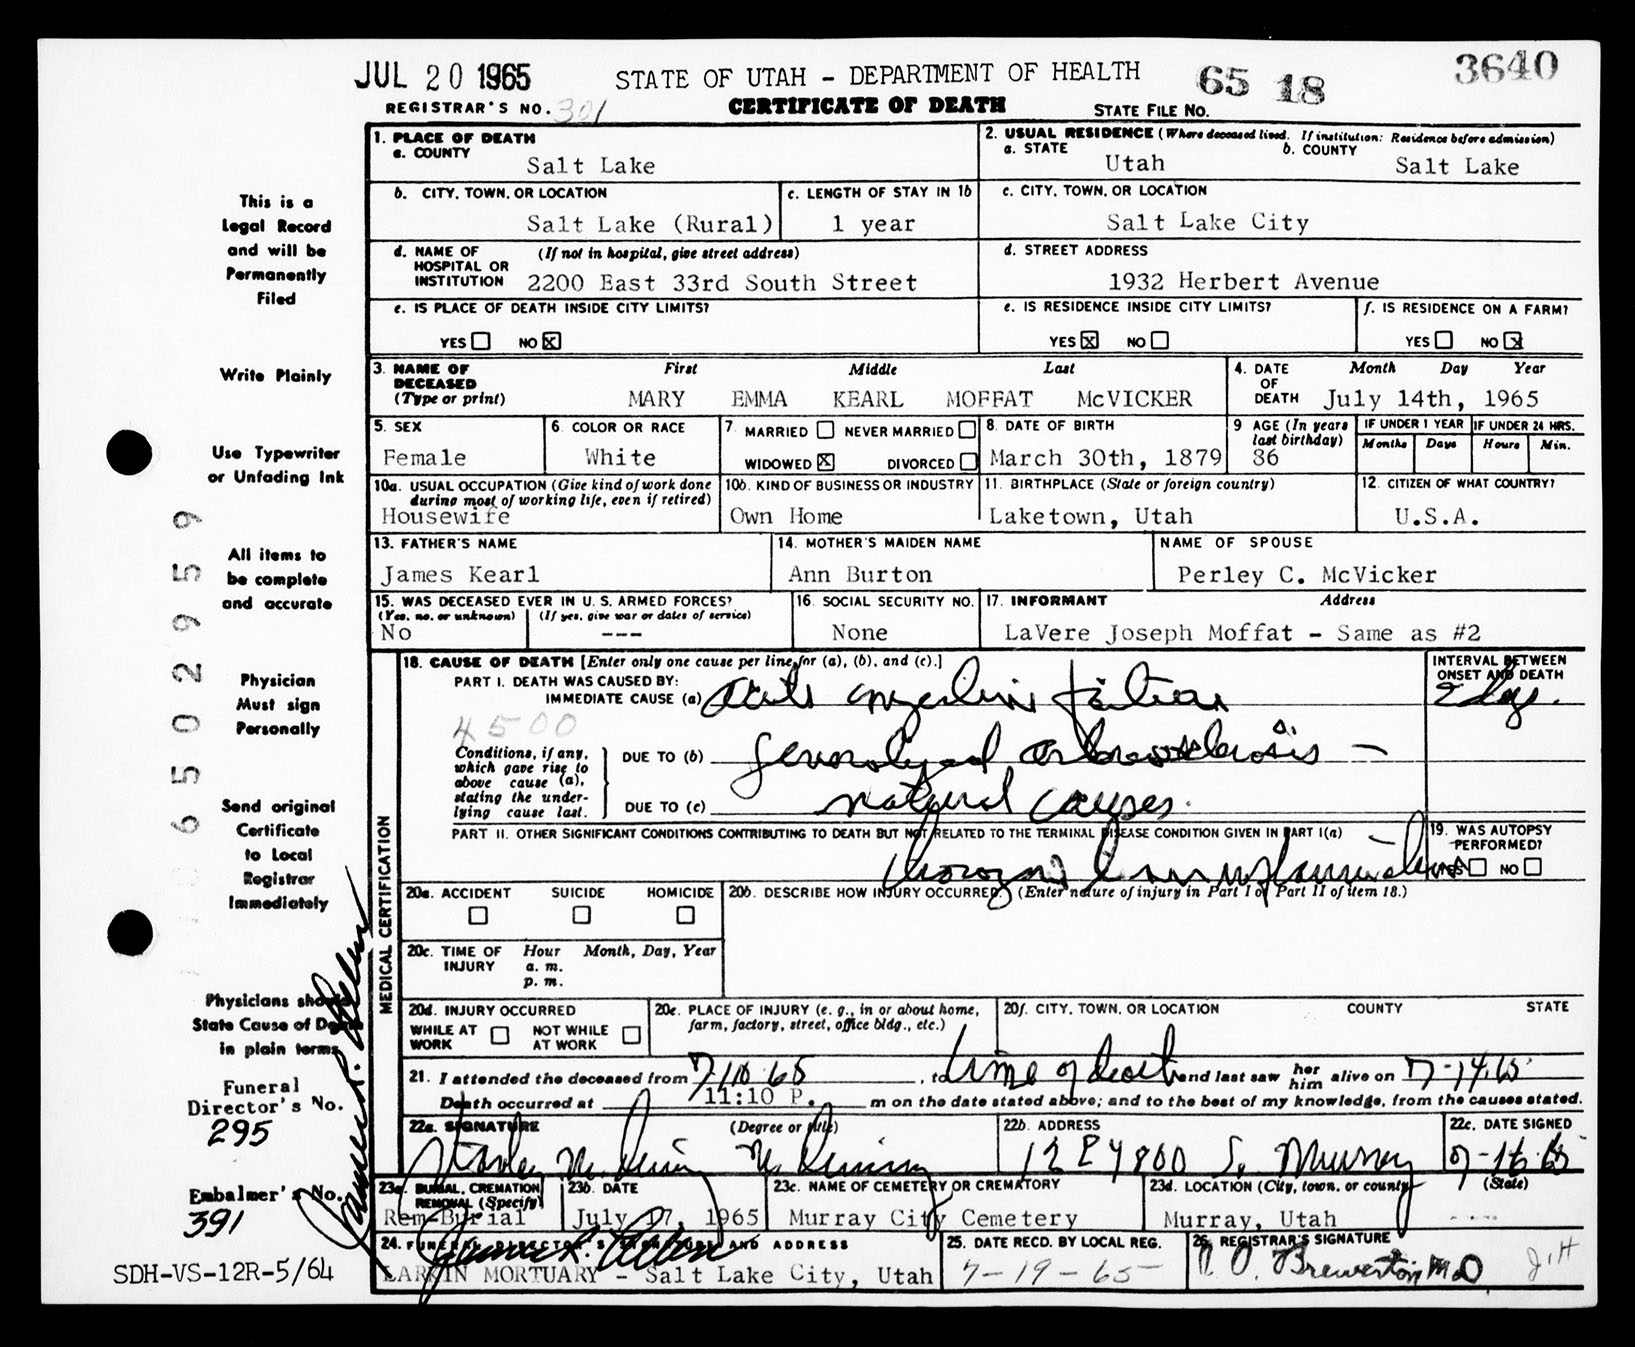 JUL 20 1965 STATE OF UTAH - DEPARTMENT OF HEALTH 65 18 3640
REGISTRAR'S NO. 301 CERTIFICATE OF DEATH STATE FILE NO.
1. PLACE OF DEATH
a. COUNTY
Salt Lake
2. USUAL RESIDENCE (Where deceased lived. If institution: Residence before admission)
a. STATE b. COUNTY
Utah Salt Lake
b. CITY, TOWN, OR LOCATION
Salt Lake (Rural)
c. LENGTH OF STAY IN 1b
1 year
c. CITY, TOWN, OR LOCATION
Salt Lake City
d. NAME OF HOSPITAL OR INSTITUTION (If not in hospital, give street address)
2200 East 33rd South Street
d. STREET ADDRESS
1932 Herbert Avenue
e. IS PLACE OF DEATH INSIDE CITY LIMITS?
YES NO X
e. IS RESIDENCE INSIDE CITY LIMITS?
YES X NO
f. IS RESIDENCE ON A FARM?
YES NO X
3. NAME OF DECEASED (Type or print)
First Middle Last
MARY EMMA KEARL MOFFAT McVICKER
4. DATE OF DEATH Month Day Year
July 14th, 1965
5. SEX
Female
6. COLOR OR RACE
White
7. MARRIED NEVER MARRIED
WIDOWED X DIVORCED
8. DATE OF BIRTH
March 30th, 1879
9 AGE (In years last birthday)
86
IF UNDER 1 YEAR
Months Days
IF UNDER 24 HRS.
Hours Min.
10a. USUAL OCCUPATION (Give kind of work done during most of working life, even if retired)
Housewife
10b. KIND OF BUSINESS OR INDUSTRY
Own Home
11. BIRTHPLACE (State or foreign country)
Laketown, Utah
12. CITIZEN OF WHAT COUNTRY?
U.S.A.
13. FATHER'S NAME
James Kearl
14. MOTHER'S MAIDEN NAME
Ann Burton
NAME OF SPOUSE
Perley C. McVicker
15. WAS DECEASED EVER IN U. S. ARMED FORCES?
(Yes, no, or unknown) (If yes, give war or dates of service)
No ---
16. SOCIAL SECURITY NO.
None
17. INFORMANT Address
LaVere Joseph Moffat - Same as #2
MEDICAL CERTIFICATION
18. CAUSE OF DEATH [Enter only one cause per line for (a), (b), and (c).]
PART I. DEATH WAS CAUSED BY:
IMMEDIATE CAUSE (a)
4500
Conditions, if any, which gave rise to above cause (a), stating the underlying cause last.
DUE TO (b) generalized arteriosclerosis -
DUE TO (c) natural causes.
INTERVAL BETWEEN ONSET AND DEATH
2 days.
PART II. OTHER SIGNIFICANT CONDITIONS CONTRIBUTING TO DEATH BUT NOT RELATED TO THE TERMINAL DISEASE CONDITION GIVEN IN PART I(a)
19. WAS AUTOPSY PERFORMED?
YES NO
20a. ACCIDENT SUICIDE HOMICIDE
20b. DESCRIBE HOW INJURY OCCURRED. (Enter nature of injury in Part I or Part II of item 18.)
20c. TIME OF INJURY Hour Month, Day, Year
a. m.
p. m.
20d. INJURY OCCURRED
WHILE AT WORK NOT WHILE AT WORK
20e. PLACE OF INJURY (e. g., in or about home, farm, factory, street, office bldg., etc.)
20f. CITY, TOWN, OR LOCATION COUNTY STATE
21. I attended the deceased from , to time of death and last saw her him alive on 7-14-65
Death occurred at 11:10 P. m on the date stated above; and to the best of my knowledge, from the causes stated.
22a. SIGNATURE (Degree or title)
22b. ADDRESS
Murray
22c. DATE SIGNED
7-16-65
23a. BURIAL, CREMATION, REMOVAL (Specify)
Rem-Burial
23b. DATE
July 17, 1965
23c. NAME OF CEMETERY OR CREMATORY
Murray City Cemetery
23d. LOCATION (City, town, or county) (State)
Murray, Utah
24. FUNERAL DIRECTOR'S SIGNATURE AND ADDRESS
LARKIN MORTUARY - Salt Lake City, Utah
25. DATE RECD. BY LOCAL REG.
7-19-65
26. REGISTRAR'S SIGNATURE
Brewerton MD
This is a
Legal Record
and will be
Permanently
Filed
Write Plainly
Use Typewriter
or Unfading Ink
All items to
be complete
and accurate
Physician
Must sign
Personally
Send original
Certificate
to Local
Registrar
Immediately
Physicians should
State Cause of Death
in plain terms
Funeral
Director's No.
295
Embalmer's No.
391
SDH-VS-12R-5/64
6 5 0 2 9 5 9